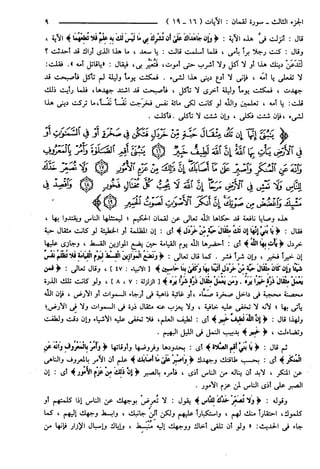 الجزء الثالث - سورة لقمان : الآيات ( ١٦ - ١٩ ) ٩
قال : أنزلت فيّ هذه الآية : ﴿ وَإِن جَاهَدَاكَ عَلَىٰ أَن تُشْرِكَ بِي مَا لَيْسَ لَكَ بِهِ عِلْمٌ فَلَا تُطِعْهُمَا ﴾ الآية ،
وقال : كنت رجلاً براً بأمي ، فلما أسلمت قالت : يا سعد ، ما هذا الذي أراك قد أحدثت ؟
لتدعن دينك هذا أو لا آكل ولا أشرب حتى أموت ، فتعير بي ، فيقال : «يا قاتل أمه» . فقلت :
لا تفعلي يا أمه ، فإني لا أدع ديني هذا لشيء . فمكثت يوماً وليلة لم تأكل فأصبحت قد
جهدت ، فمكثت يوماً وليلة أخرى لا تأكل ، فأصبحت قد اشتد جهدها، فلما رأيت ذلك
قلت : يا أمه ، تعلمين والله لو كانت لك مائة نفس فخرجت نفساً نفساً، ما تركت ديني هذا
لشيء ، فإن شئت فكلي ، وإن شئت لا تأكلي . فأكلت .
﴿ يَا بُنَيَّ إِنَّهَا إِن تَكُ مِثْقَالَ حَبَّةٍ مِّنْ خَرْدَلٍ فَتَكُن فِي صَخْرَةٍ أَوْ فِي السَّمَاوَاتِ أَوْ
فِي الْأَرْضِ يَأْتِ بِهَا اللَّهُ إِنَّ اللَّهَ لَطِيفٌ خَبِيرٌ ﴿١٦﴾ يَا بُنَيَّ أَقِمِ الصَّلَاةَ وَأْمُرْ بِالْمَعْرُوفِ
وَانْهَ عَنِ الْمُنكَرِ وَاصْبِرْ عَلَىٰ مَا أَصَابَكَ إِنَّ ذَٰلِكَ مِنْ عَزْمِ الْأُمُورِ ﴿١٧﴾ وَلَا تُصَعِّرْ خَدَّكَ لِلنَّاسِ
وَلَا تَمْشِ فِي الْأَرْضِ مَرَحًا إِنَّ اللَّهَ لَا يُحِبُّ كُلَّ مُخْتَالٍ فَخُورٍ ﴿١٨﴾ وَاقْصِدْ فِي
مَشْيِكَ وَاغْضُضْ مِن صَوْتِكَ إِنَّ أَنكَرَ الْأَصْوَاتِ لَصَوْتُ الْحَمِيرِ ﴿١٩﴾
هذه وصايا نافعة قد حكاها الله تعالى عن لقمان الحكيم ؛ ليمتثلها الناس ويقتدوا بها ،
فقال : ﴿ يَا بُنَيَّ إِنَّهَا إِن تَكُ مِثْقَالَ حَبَّةٍ مِّنْ خَرْدَلٍ ﴾ أي : إن المظلمة أو الخطيئة لو كانت مثقال حبة
خردل ﴿ يَأْتِ بِهَا اللَّهُ ﴾ أي : أحضرها الله يوم القيامة حين يضع الموازين القسط ، وجازى عليها
إن خيراً فخير ، وإن شراً فشر . كما قال تعالى : ﴿ وَنَضَعُ الْمَوَازِينَ الْقِسْطَ لِيَوْمِ الْقِيَامَةِ فَلَا تُظْلَمُ نَفْسٌ
شَيْئًا وَإِن كَانَ مِثْقَالَ حَبَّةٍ مِّنْ خَرْدَلٍ أَتَيْنَا بِهَا وَكَفَىٰ بِنَا حَاسِبِينَ ﴾ [ الأنبياء : ٤٧ ] ، وقال تعالى : ﴿ فَمَن
يَعْمَلْ مِثْقَالَ ذَرَّةٍ خَيْرًا يَرَهُ . وَمَن يَعْمَلْ مِثْقَالَ ذَرَّةٍ شَرًّا يَرَهُ ﴾ [ الزلزلة : ٧ ، ٨ ] ، ولو كانت تلك الذرة
محصنة محجبة في داخل صخرة صماء ، أو غائبة ذاهبة في أرجاء السموات أو الأرض ، فإن الله
يأتي بها ؛ لأنه لا تخفى عليه خافية ، ولا يعزب عنه مثقال ذرة في السموات ولا في الأرض؛
ولهذا قال : ﴿ إِنَّ اللَّهَ لَطِيفٌ خَبِيرٌ ﴾ أي : لطيف العلم، فلا تخفى عليه الأشياء وإن دقت ولطفت
وتضاءلت ، ﴿ خَبِيرٌ ﴾ بدبيب النمل في الليل البهيم .
ثم قال : ﴿ يَا بُنَيَّ أَقِمِ الصَّلَاةَ ﴾ أي : بحدودها وفروضها وأوقاتها ﴿ وَأْمُرْ بِالْمَعْرُوفِ وَانْهَ عَنِ
الْمُنكَرِ ﴾ أي : بحسب طاقتك وجهدك ﴿ وَاصْبِرْ عَلَىٰ مَا أَصَابَكَ ﴾ علم أن الآمر بالمعروف والناهي
عن المنكر ، لابد أن يناله من الناس أذى ، فأمره بالصبر ﴿ إِنَّ ذَٰلِكَ مِنْ عَزْمِ الْأُمُورِ ﴾ أي : إن
الصبر على أذى الناس لمن عزم الأمور .
وقوله : ﴿ وَلَا تُصَعِّرْ خَدَّكَ لِلنَّاسِ ﴾ يقول : لا تعرض بوجهك عن الناس إذا كلمتهم أو
كلموك، احتقاراً منك لهم ، واستكباراً عليهم ولكن ألن جانبك ، وابسط وجهك إليهم ، كما
جاء في الحديث: « ولو أن تلقى أخاك ووجهك إليه منبسط ، وإياك وإسبال الإزار فإنها من